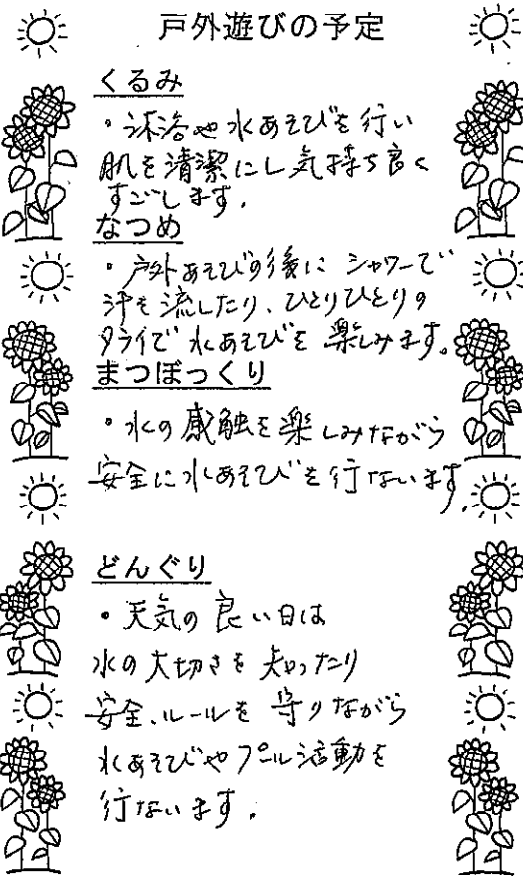 戸外遊びの予定
くるみ
・沐浴や水あそびを行い
肌を清潔にし気持ち良く
すごします。
なつめ
・戸外あそびの後に シャワーで
汗を流したり、ひとりひとりの
タライで水あそびを楽しみます。
まつぼっくり
・水の感触を楽しみながら
安全に水あそびを行ないます。
どんぐり
・天気の良い日は
水の大切さを知ったり
安全、ルールを守りながら
水あそびやプール活動を
行ないます。